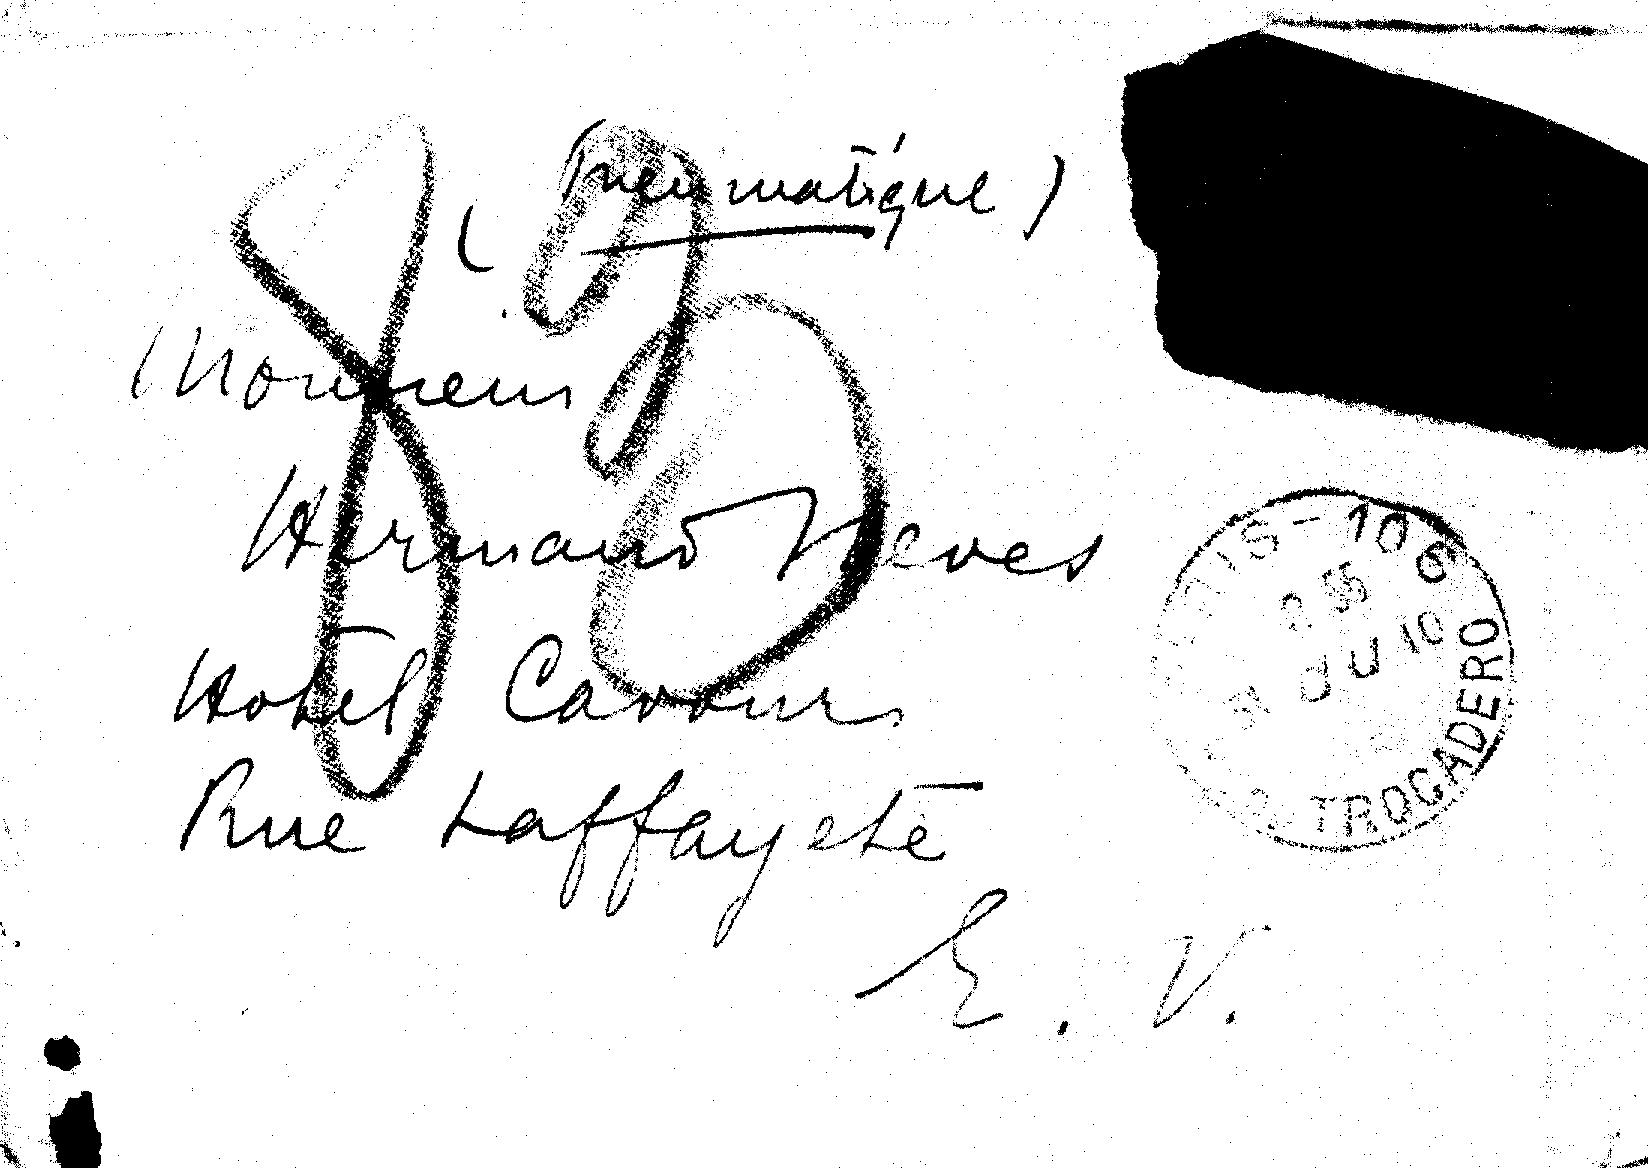 (Pneumatique)
Monsieur
Hermano Neves
Hotel Cavour
Rue Laffayete
E. V.
TIS-106
JU 10
TROCADERO